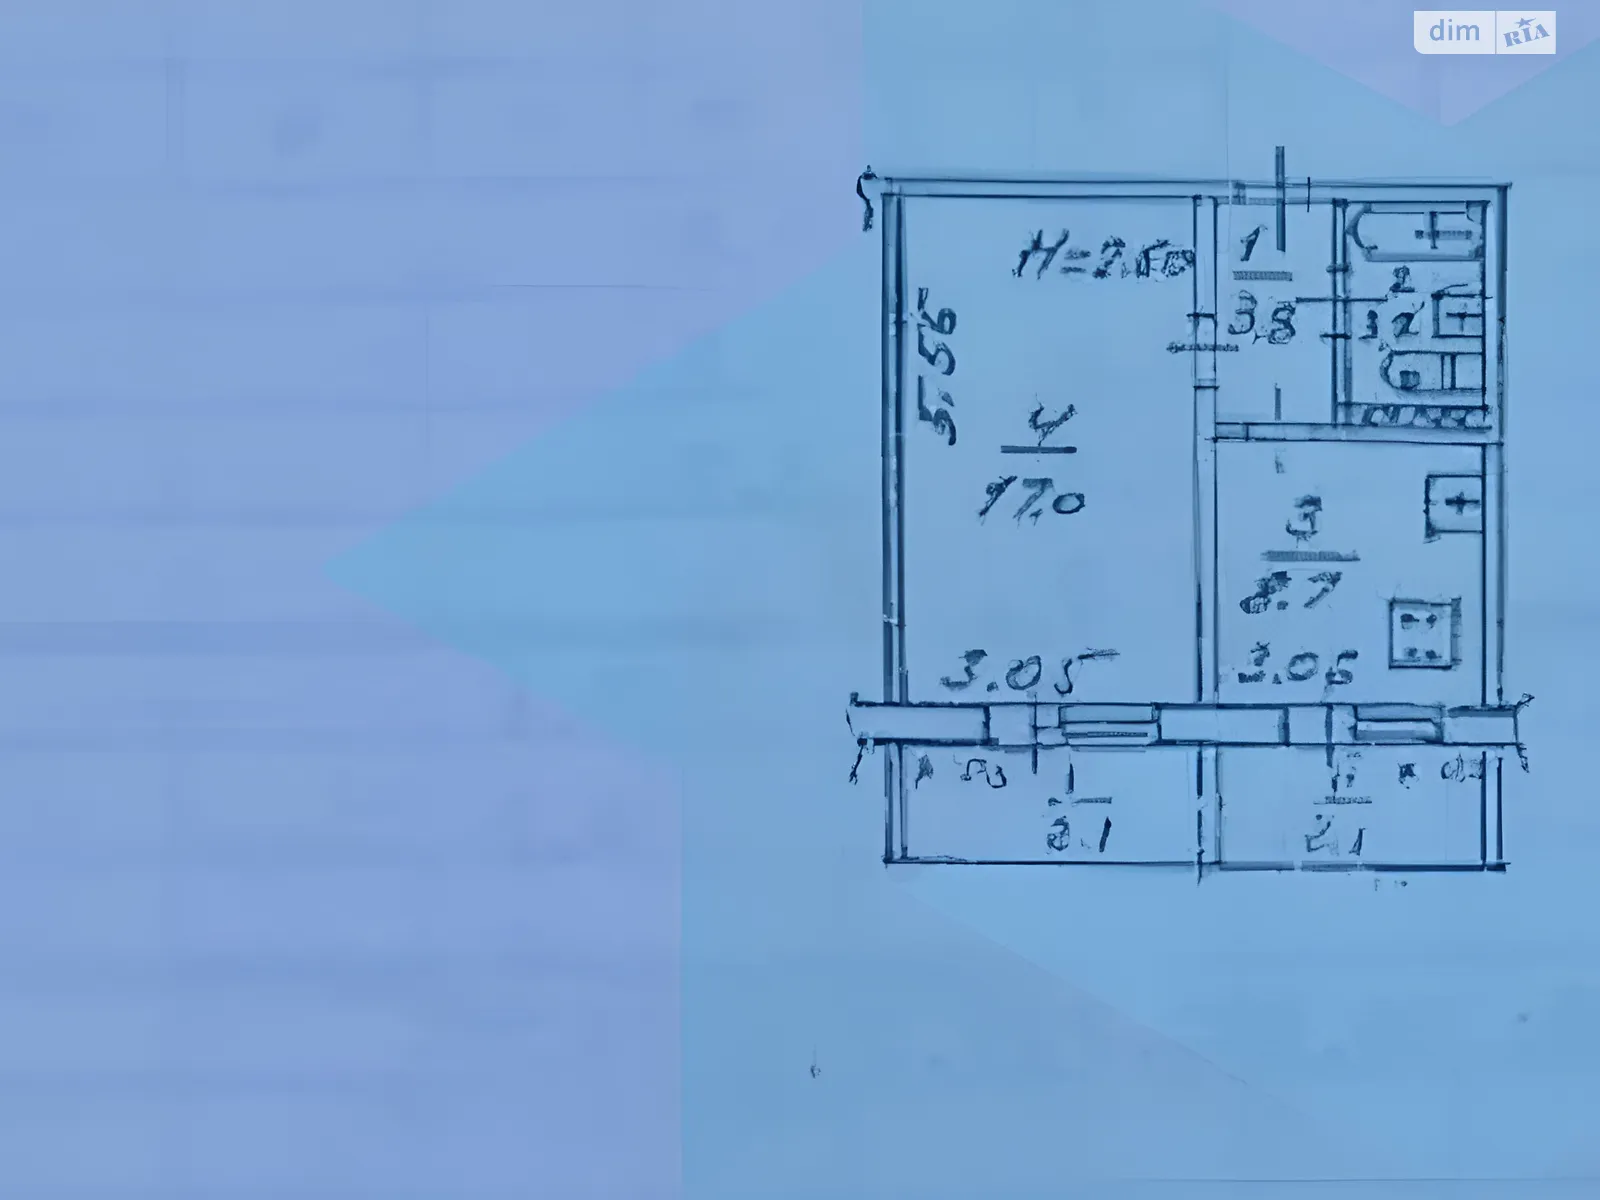 dim RIA
H=2.50
1
3.8
2
3.2
5.56
4
17.0
3
8.7
3.05
3.05
I
2.1
II
2.1